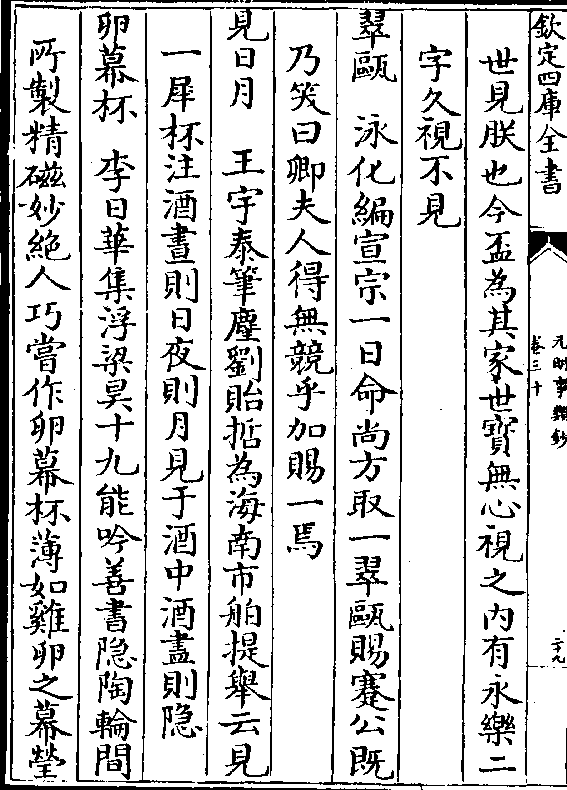 欽定四庫全書
元明事類鈔
卷三十
二十九
世見朕也今盃為其家世寶無心視之内有永樂二
字久視不見
翠甌　泳化編宣宗一日命尚方取一翠甌賜蹇公既
乃笑曰卿夫人得無競乎加賜一焉
見日月　王宇泰筆塵劉貽哲為海南市舶提舉云見
一犀杯注酒晝則日夜則月見于酒中酒盡則隐
卵幕杯　李日華集浮梁昊十九能吟善書隐陶輪間
所製精磁妙絶人巧嘗作卵幕杯薄如雞卵之幕瑩